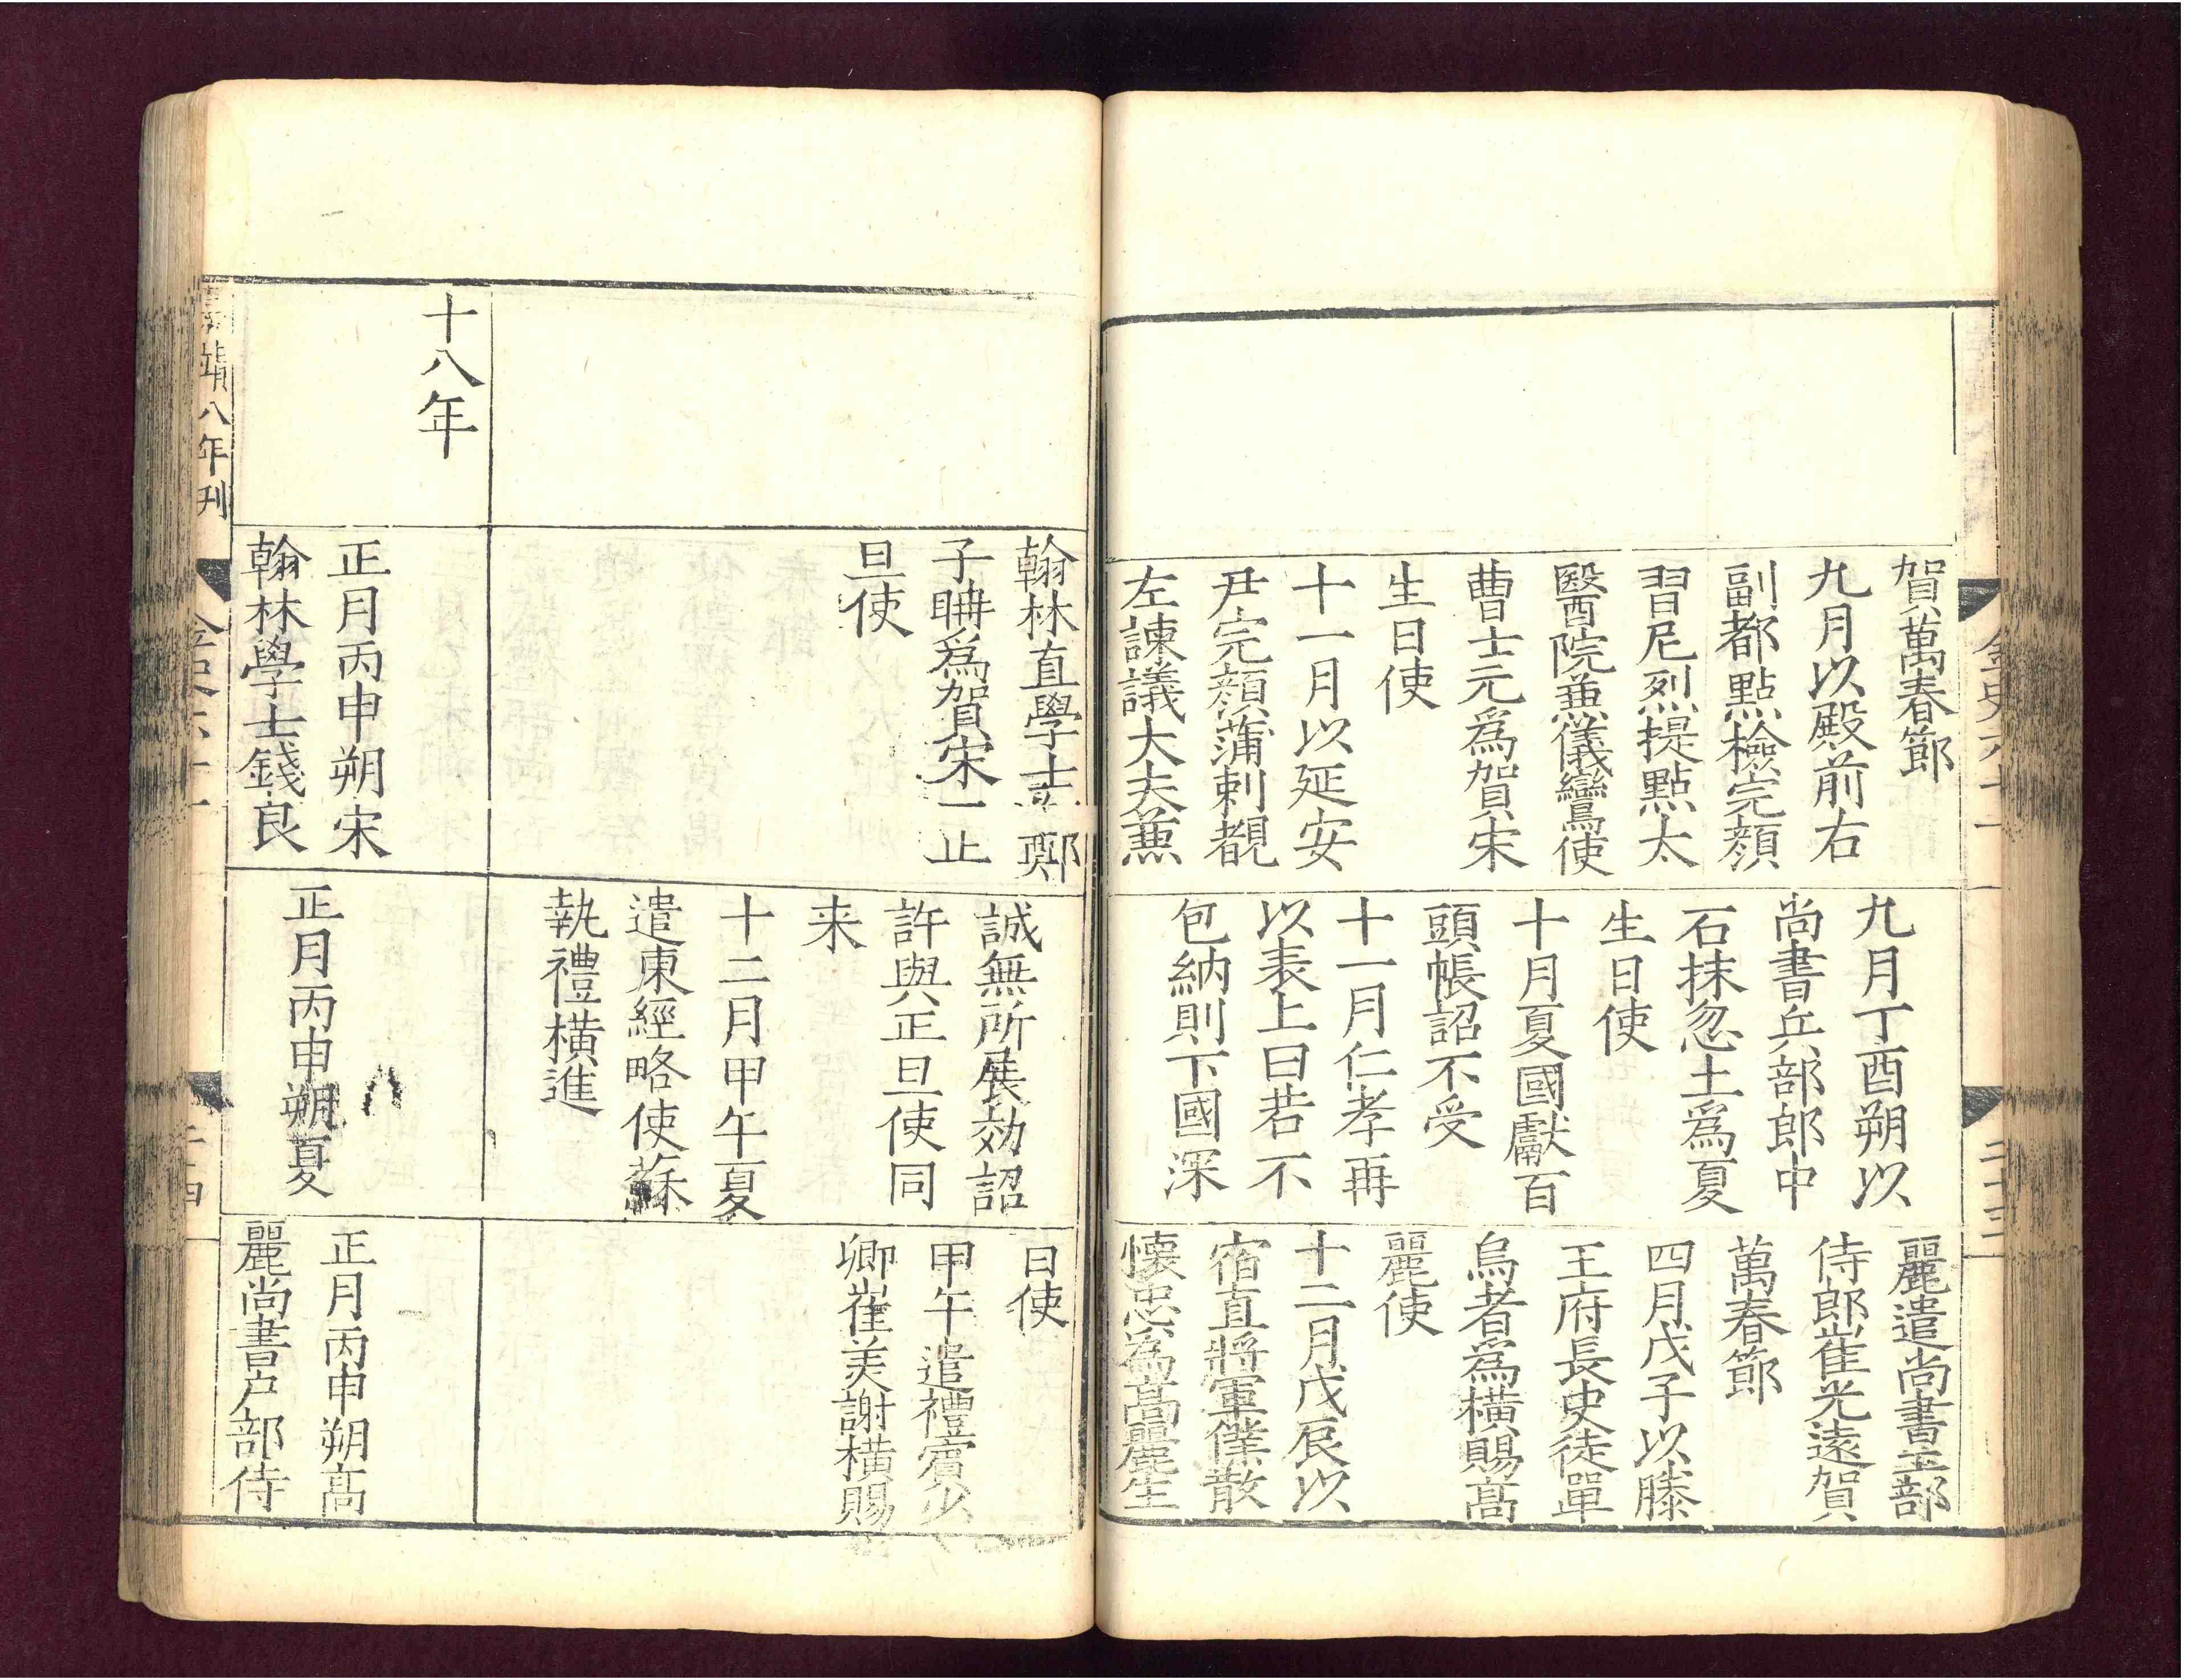 賀萬春節
九月以殿前右
副都點檢完顔
習尼烈提點太
醫院兼儀鸞使
曹士元爲賀宋
生日使
十一月以延安
尹完顔蒲剌覩
左諫議大夫兼
九月丁酉朔以
尚書兵部郎中
石抹忽土爲夏
生日使
十月夏國獻百
頭帳詔不受
十一月仁孝再
以表上曰若不
包納則下國深
麗遣尚書工部
侍郎崔光遠賀
萬春節
四月戊子以滕
王府長史徒單
烏者爲横賜髙
麗使
十二月戊辰以
宿直將軍僕散
懐忠為髙麗生
金史六十一
二十三
翰林直學士鄭
子聃爲賀宋正
旦使
誠無所展効詔
許與正旦使同
来
十二月甲午夏
遣東經略使蘇
執禮横進
日使
甲午遣禮賓少
卿崔美謝横賜
十八年
正月丙申朔宋
翰林學士錢良
正月丙申朔夏
正月丙申朔髙
麗尚書户部侍
嘉靖八年刊
金史六十一